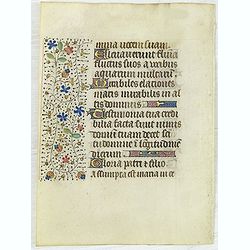 mina vocem suam
Elevaverunt flumina
fluctus suos a vocibus
aquarum multarum
Mirabiles elationes
maris mirabilis in al
tis dominus
Testimonia tua credi
bilia facta sunt nimis
domum tuam decet sci
tu domine i longitudine
dierum
Gloria patri et filio
Assumpta est maria in ce